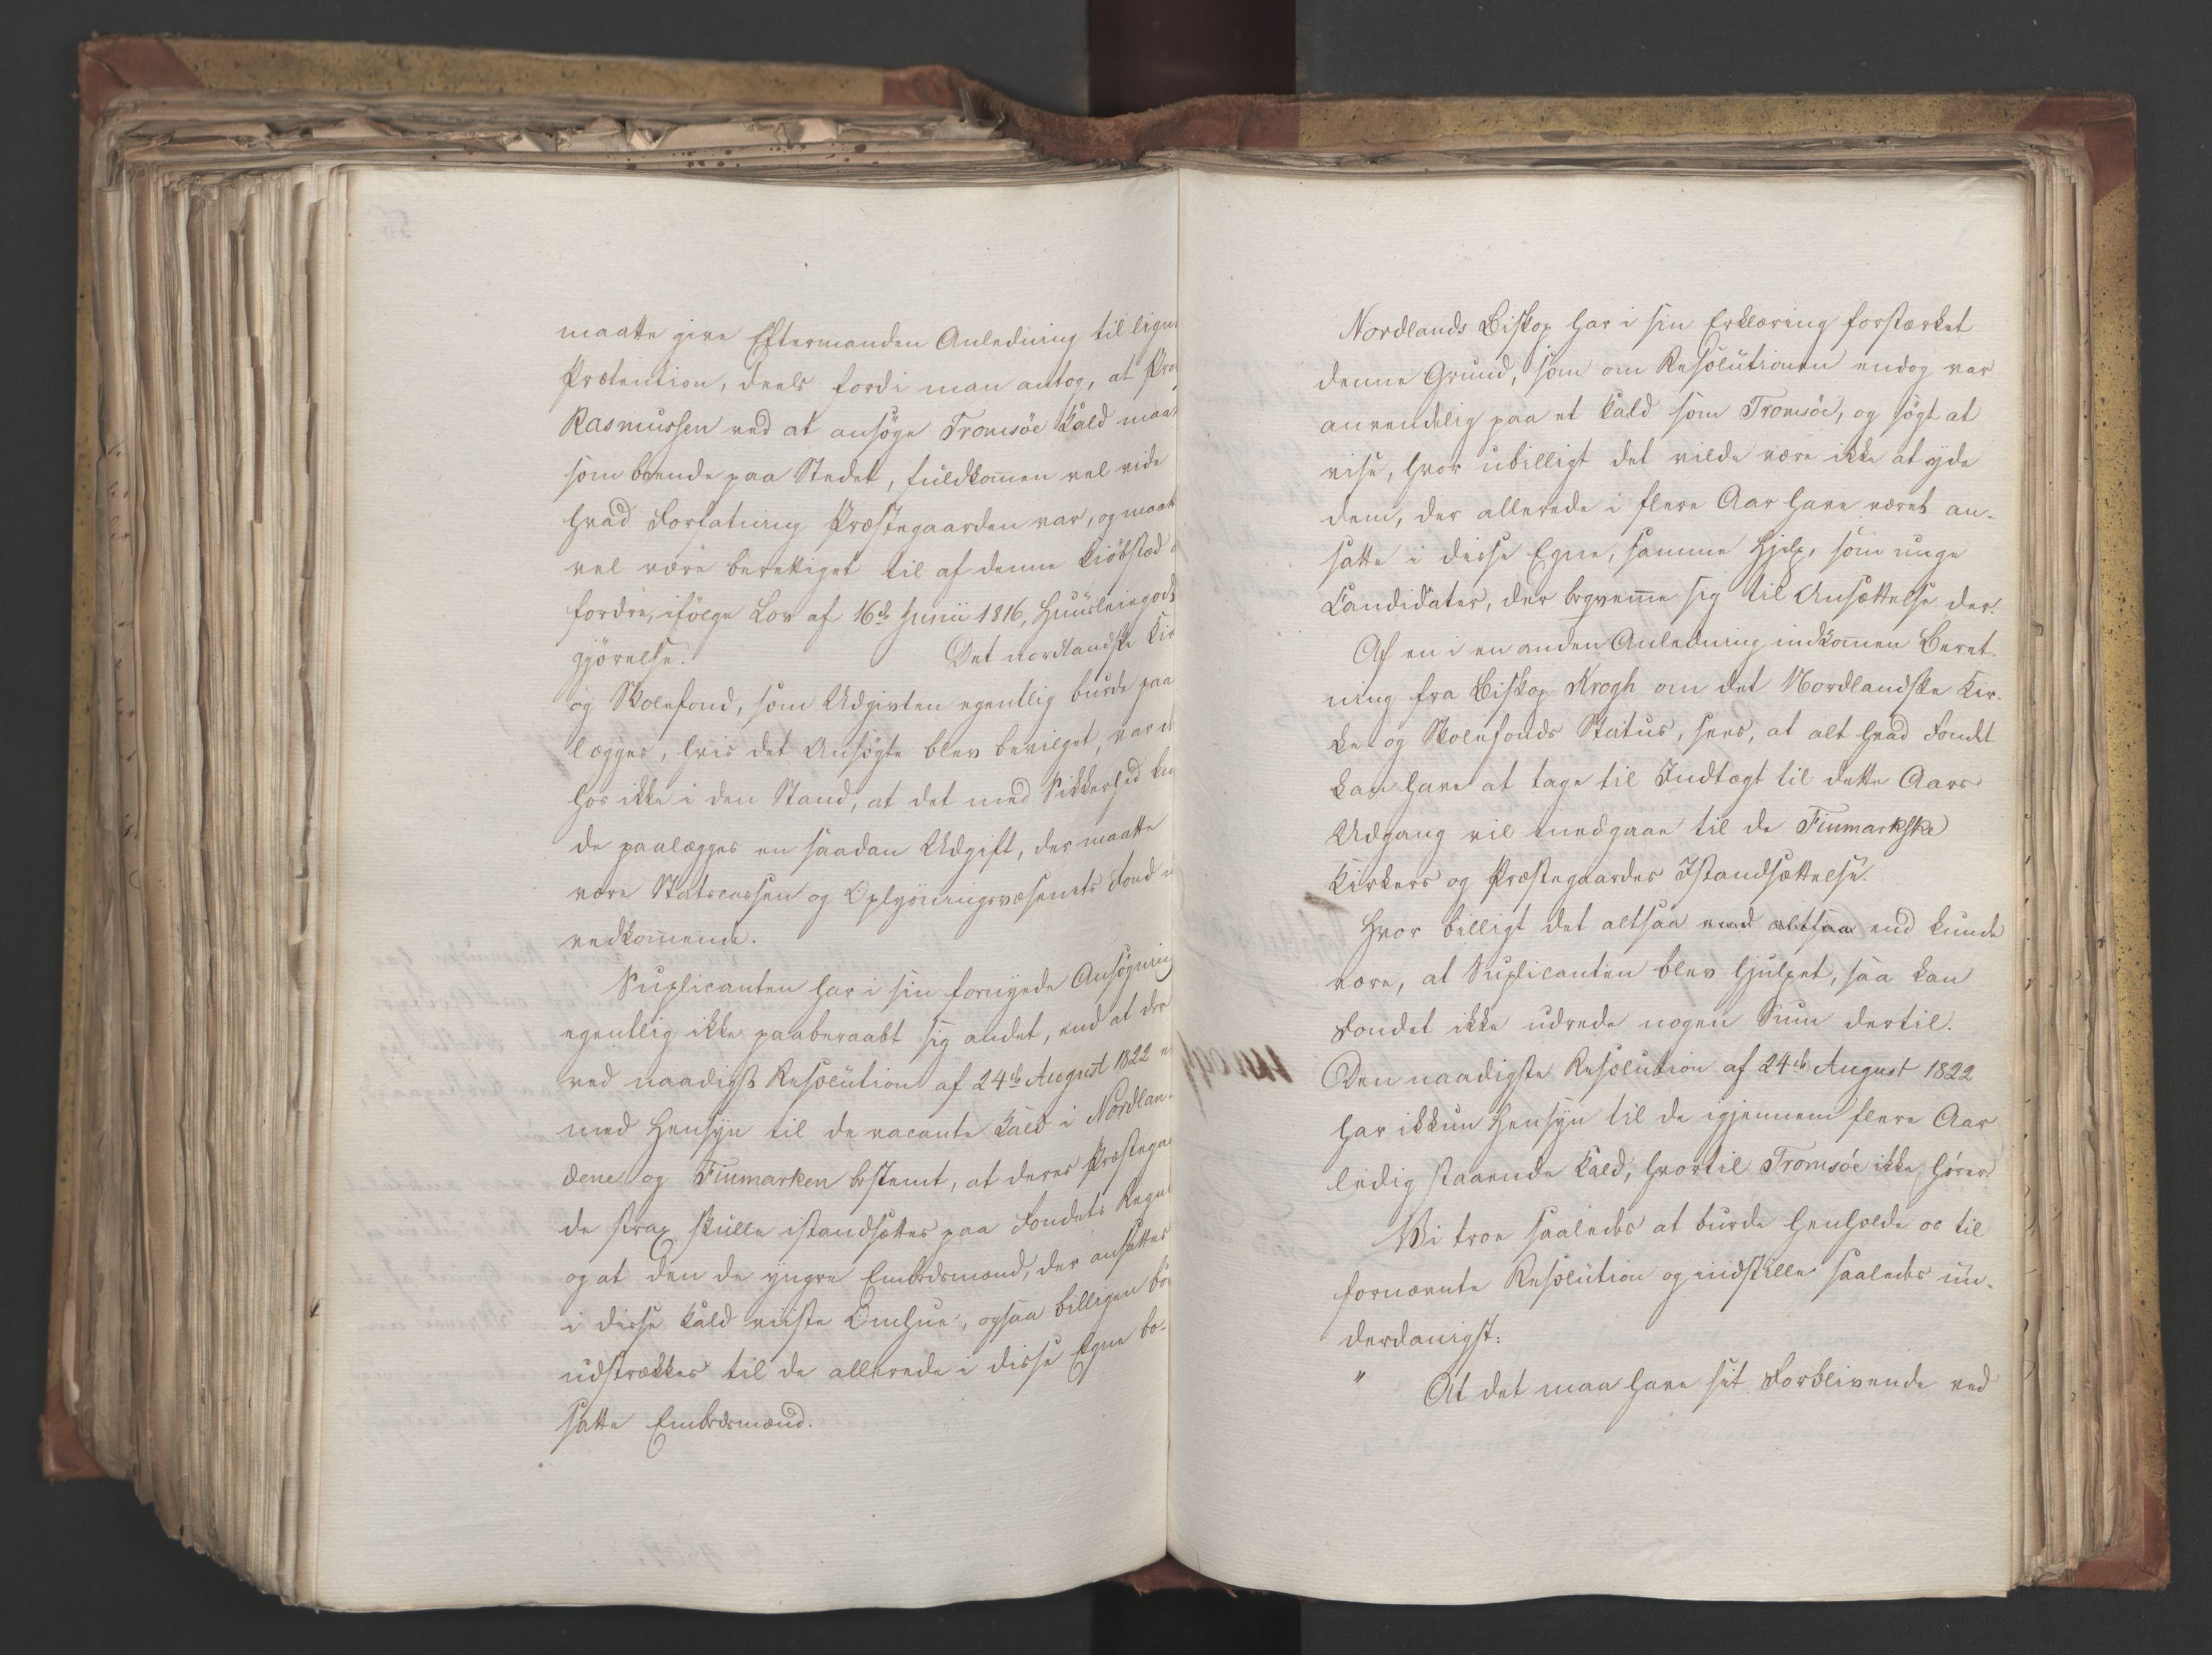 maatte give Eftermanden Anledning til lign
Prætention, deels fordi man antog, at Pro
Rasmussen ved at ansøge Tromsöe Kald maat
som boende paa Stedet, fuldkom̄en vel vide
hvad Forfatning Præstegaarden var, og maat
vel være berettiget til af denne Kiöbstæd
fordre, ifölge Lov af 16de Junii 1816, Huusleiegodt
gjörelse. Det nordlandske Kir
og Skolefond, som Udgivten egentlig burde paa
lægges, hvis det Ansögte blev bevilget, var d
hos ikke i den Stand, at det med Sikkerhed kun
de paalægges en saadan Udgift, der maatte
være Statscassen og Oplysningsvæsenets Fond u
vedkom̄ende.
Suplicanten har i sin fornyede Ansögning
egentlig ikke paaberaabt sig andet, end at der
ved naadigst Resolution af 24de August 1822 er
med Hensyn til de vacante Kald i Nordlan-
dene og Finmarken bestemt, at deres Præstegaa
de strax skulle istandsættes paa Fondets Regni
og at den de yngre Embedsmænd, der ansættes
i disse Kald viiste Omhue, ogsaa billigen bör
udstrækkes til de allerede i disse Egne be-
satte Embedsmænd.
Nordlands Biskop har i sin Erklæring forstærket
denne Grund, som om Resolutionen endog var
anvendelig paa et Kald som Tromsöe, og sögt at
vise, hvor ubilligt det vilde være ikke at yde
dem, der allerede i flere Aar have været an-
satte i disse Egne, samme Hjelp, som unge
Candidater, der beqvem̄e sig til Ansættelse der.
Af en i en anden Anledning indkom̄en Beret-
ning fra Biskop Krogh om det Nordlandske Kir-
ke og Skolefonds Status, sees, at alt hvad Fondet
kan have at tage til Indtægt til dette Aars
Udgang vil medgaae til de Finmarkske
Kirkers og Præstegaardes Istandsættelse.
Hvor billigt det altsaa end altsaa end kunde
være, at Suplicanten blev hjulpet, saa kan
Fondet ikke udrede nogen Sum dertil.
Den naadigste Resolution af 24de August 1822
har ikkun Hensyn til de igjennem flere Aar
ledig staaende Kald, hvortil Tromsöe ikke hörer.
Vi troe saaledes at burde henholde os til
fornævnte Resolution og indstille saaledes un-
derdanigst:
" At det maa have sit Forblivende ved